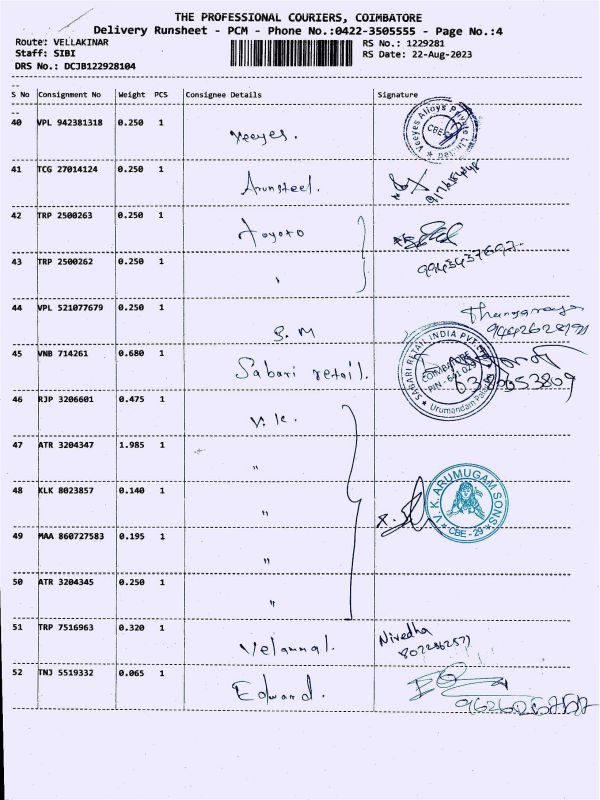 THE PROFESSIONAL COURIERS, COIMBATORE
Delivery Runsheet - PCM - Phone No.:0422-3505555 - Page No.:4
Route: VELLAKINAR RS No.: 1229281
Staff: SIBI RS Date: 22-Aug-2023
DRS No.: DCJB122928104
S No Consignment No Weight PCS Consignee Details Signature
40 VPL 942381318 0.250 1 Veeyes.
Veeyes Alloys Private Lim CBE
41 TCG 27014124 0.250 1 Arunsteel.
42 TRP 2500263 0.250 1 Toyoto
43 TRP 2500262 0.250 1 "
9943437697
44 VPL 521077679 0.250 1 S.M
45 VNB 714261 0.680 1 Sabari retail.
SABARI RETAIL INDIA PVT LTD COIMBATORE PIN - 641 029 Urumandam Palayam
46 RJP 3206601 0.475 1 V.K.
47 ATR 3204347 1.985 1 "
48 KLK 8023857 0.140 1 "
V. K. ARUMUGAM SONS CBE - 29
49 MAA 860727583 0.195 1 "
50 ATR 3204345 0.250 1 "
51 TRP 7516963 0.320 1 Velammal. Nivedha
52 TNJ 5519332 0.065 1 Edward.